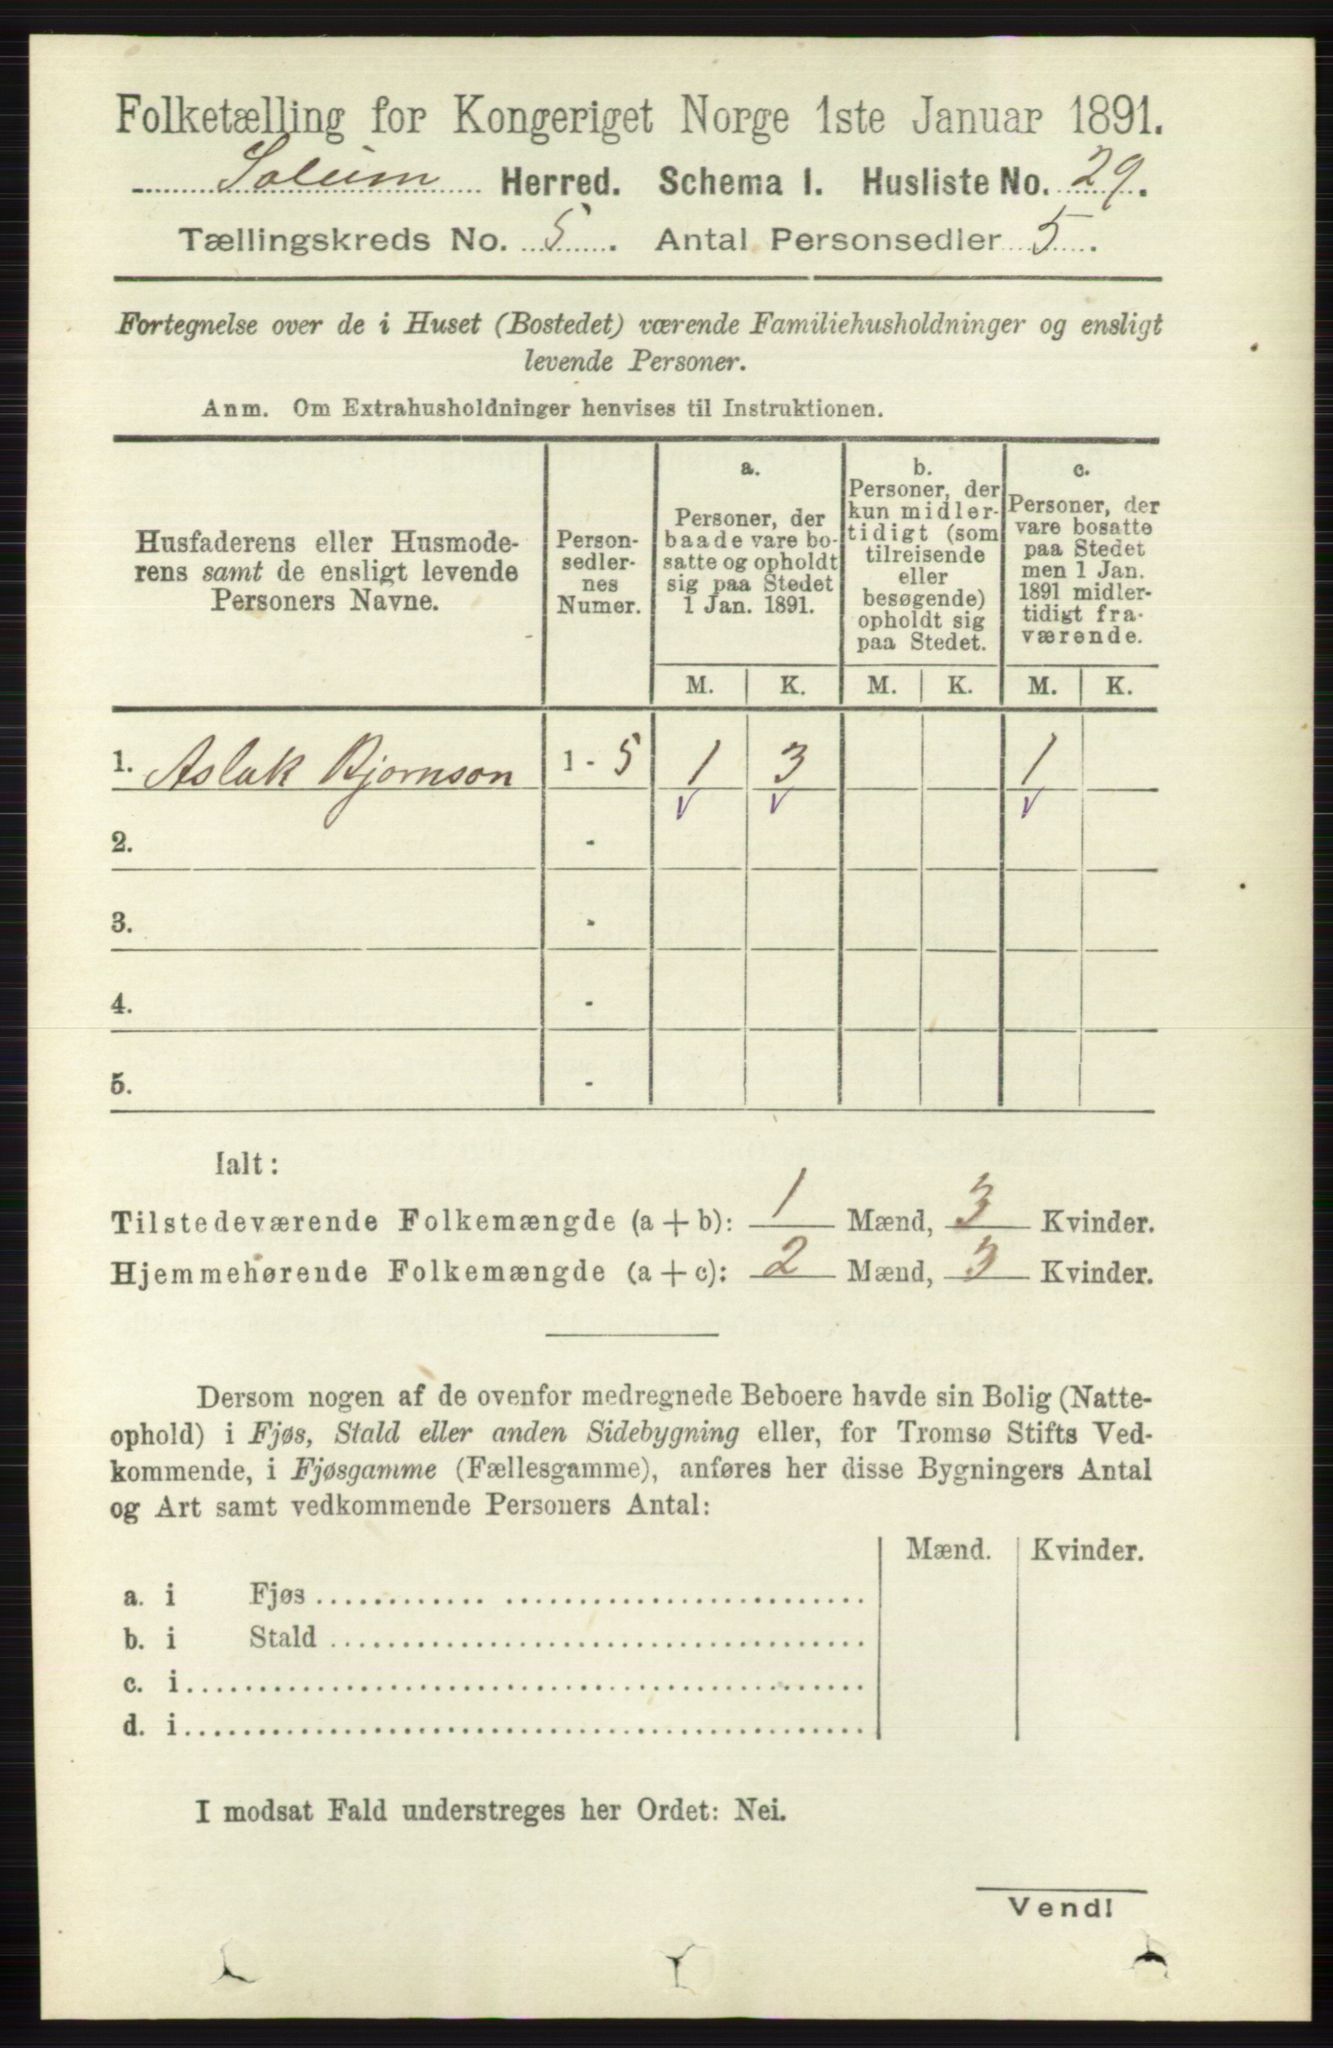 Folketælling for Kongeriget Norge 1ste Januar 1891.
Solum Herred. Schema 1. Husliste No. 29.
Tællingskreds No. 5. Antal Personsedler 5.
Fortegnelse over de i Huset (Bostedet) værende Familiehusholdninger og ensligt
levende Personer.
Anm. Om Extrahusholdninger henvises til Instruktionen.
Husfaderens eller Husmode-
rens samt de ensligt levende
Personers Navne.
Person-
sedler-
nes
Numer.
a.
Personer, der
baade vare bo-
satte og opholdt
sig paa Stedet
1 Jan. 1891.
b.
Personer, der
kun midler-
tidigt (som
tilreisende
eller
besøgende)
opholdt sig
paa Stedet.
c.
Personer, der
vare bosatte
paa Stedet
men 1 Jan.
1891 midler-
tidigt fra-
værende.
M. K. M. K. M. K.
1. Aslak Bjornson 1 - 5 1 3 1
2. -
3. -
4. -
5. -
Ialt:
Tilstedeværende Folkemængde (a + b): 1 Mænd, 3 Kvinder.
Hjemmehørende Folkemængde (a + c): 2 Mænd, 3 Kvinder.
Dersom nogen af de ovenfor medregnede Beboere havde sin Bolig (Natte-
ophold) i Fjøs, Stald eller anden Sidebygning eller, for Tromsø Stifts Ved-
kommende, i Fjøsgamme (Fællesgamme), anføres her disse Bygningers Antal
og Art samt vedkommende Personers Antal:
Mænd. Kvinder.
a. i Fjøs
b. i Stald
c. i
d. i
I modsat Fald understreges her Ordet: Nei.
Vend!